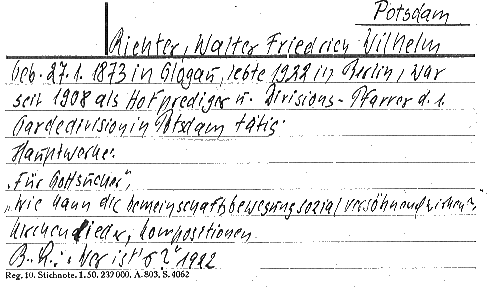 Potsdam
Richter, Walter Friedrich Wilhelm
Geb. 27.1.1873 in Glogau, lebte 1922 in Berlin, war
seit 1908 als Hofprediger u. Divisions-Pfarrer d. 1.
Gardedivision in Potsdam tätig.
Hauptwerke:
„Für Gottsucher",
„Wie kann die Gemeinschaftsbewegung sozial versöhnend wirken?",
Kirchenlieder, Kompositionen
„Wer ist's?" 1922
Reg. 10. Stichnote. 1. 50. 237000. A. 803. S. 4062